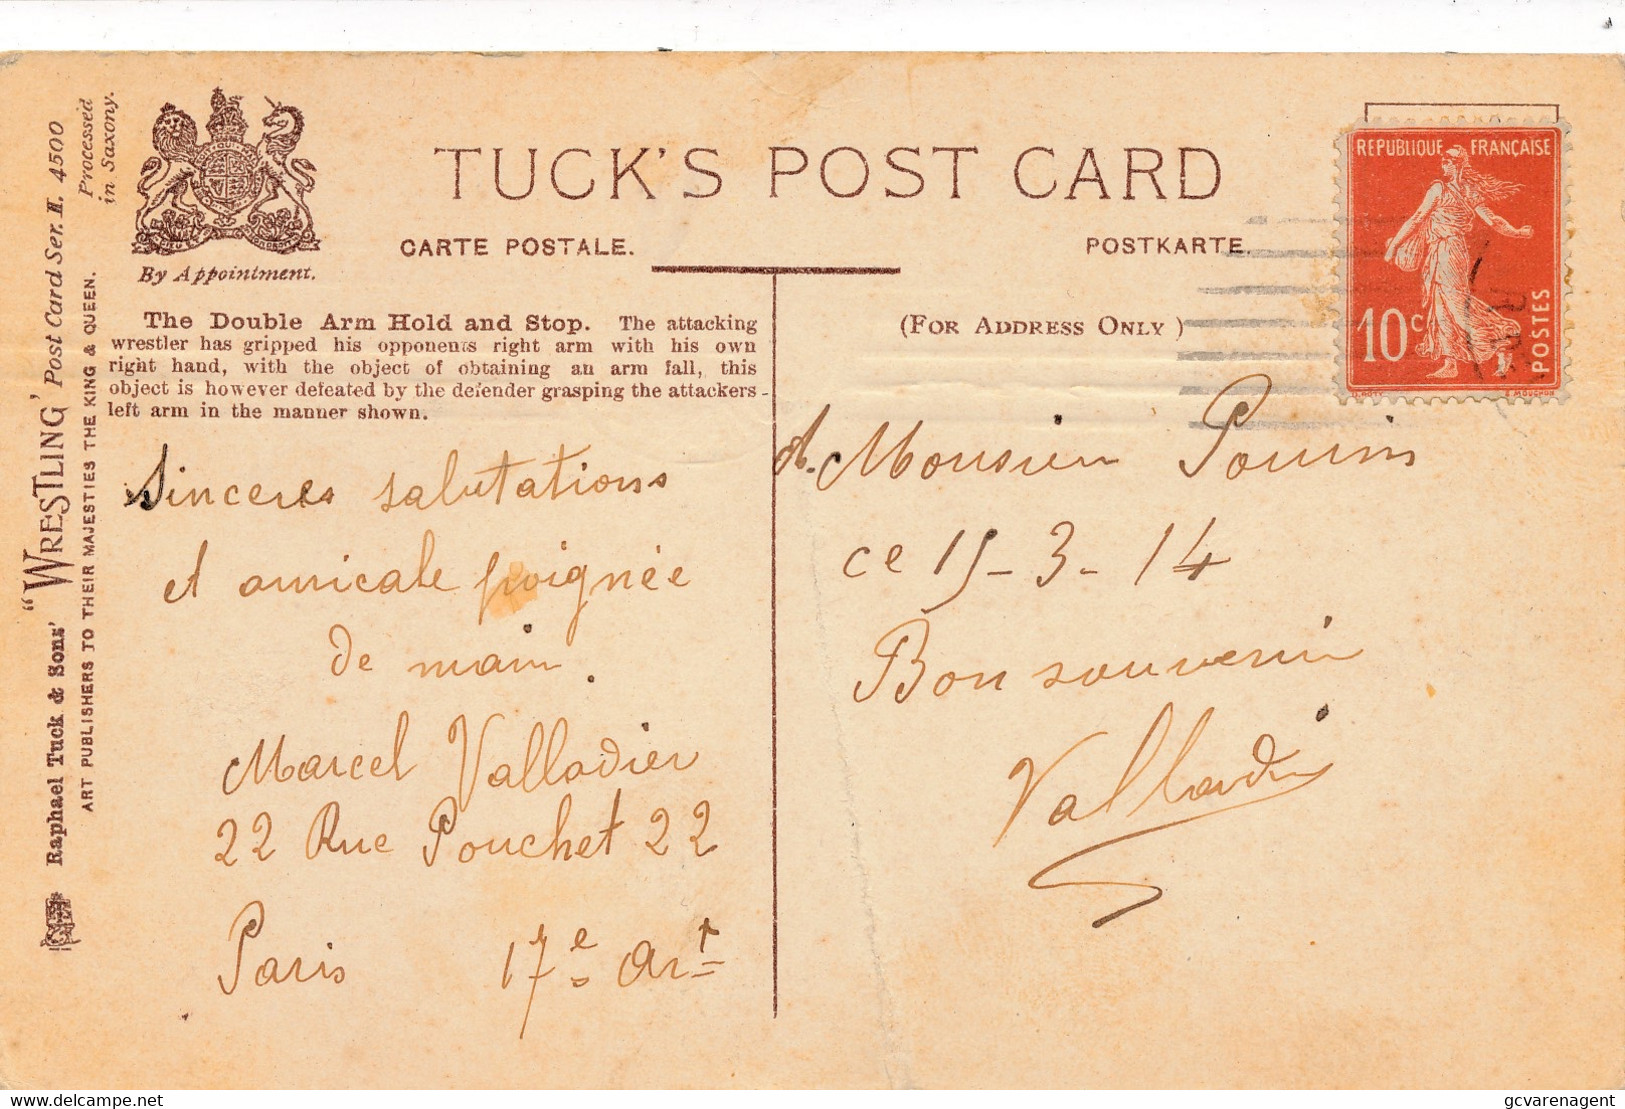 Raphael Tuck & Sons' "WRESTLING" Post Card Ser. II. 4500
ART PUBLISHERS TO THEIR MAJESTIES THE KING & QUEEN.
Processed
in Saxony.
By Appointment.
TUCK'S POST CARD
CARTE POSTALE.
POSTKARTE.
(FOR ADDRESS ONLY)
REPUBLIQUE FRANÇAISE
10c
POSTES
O. ROTY
E. MOUCHON
The Double Arm Hold and Stop. The attacking
wrestler has gripped his opponents right arm with his own
right hand, with the object of obtaining an arm fall, this
object is however defeated by the defender grasping the attackers-
left arm in the manner shown.
Sinceres salutations
et amicale poignée
de main.
Marcel Valladier
22 Rue Pouchet 22
Paris 17e Art
A. Monsieur
ce 15-3-14
Bon souvenir
Valladier
delcampe.net
gcvarenagent